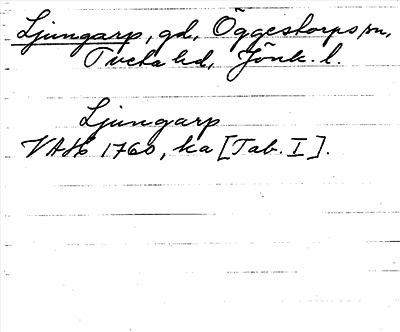 Ljungarp, gd, Öggestorps sn,
Tveta hd, Jönk. l.
Ljungarp
VAH 1760, ka [Tab. I].